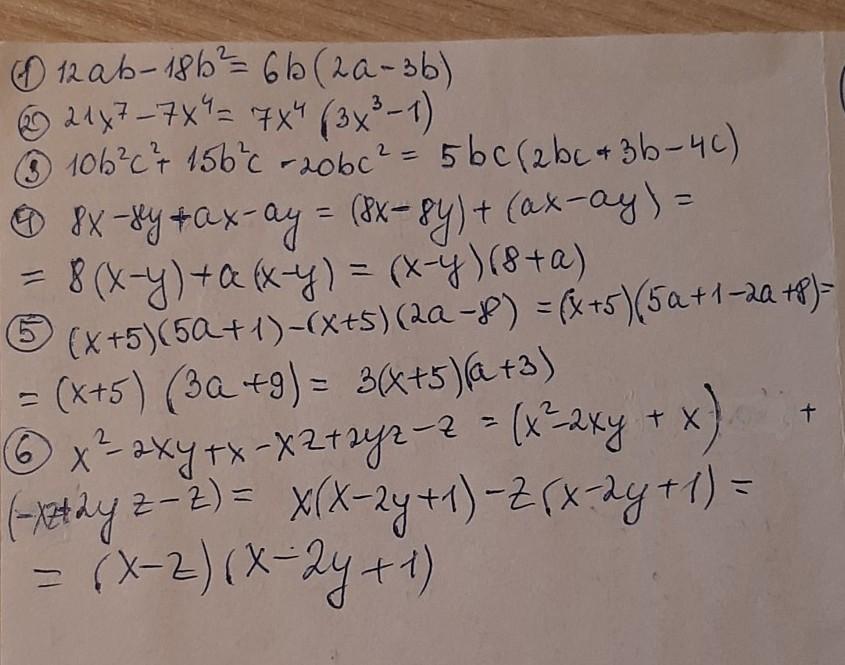 ① 12ab - 18b² = 6b(2a - 3b)
② 21x⁷ - 7x⁴ = 7x⁴ (3x³ - 1)
③ 10b²c² + 15b²c - 20bc² = 5bc(2bc + 3b - 4c)
④ 8x - 8y + ax - ay = (8x - 8y) + (ax - ay) =
= 8(x-y) + a(x-y) = (x-y)(8+a)
⑤ (x+5)(5a+1) - (x+5)(2a-8) = (x+5)(5a+1-2a+8) =
= (x+5) (3a+9) = 3(x+5)(a+3)
⑥ x² - 2xy + x - xz + 2yz - z = (x² - 2xy + x) +
(-xz + 2yz - z) = x(x-2y+1) - z(x-2y+1) =
= (x-z)(x-2y+1)